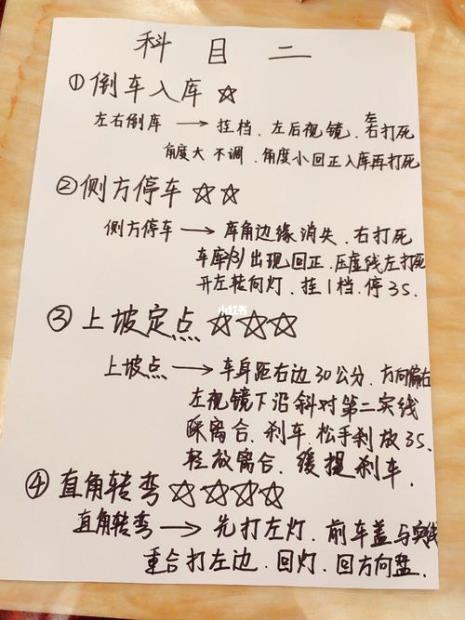 科目二
①倒车入库☆
左右倒库→挂档、左后视镜、左右打死
角度大不调、角度小回正入库再打死
②侧方停车☆☆
侧方停车→库角边缘消失、右打死
车库内出现回正、压虚线左打死
开左转向灯、挂1档、停3S.
小红书
③上坡定点☆☆☆
上坡点→车身距右边30公分、方向偏右
左视镜下沿斜对第二实线
踩离合、刹车、松手刹放3S、
轻放离合、缓提刹车.
④直角转弯☆☆☆☆
直角转弯→先打左灯、前车盖与实线
重合打左边、回灯、回方向盘.